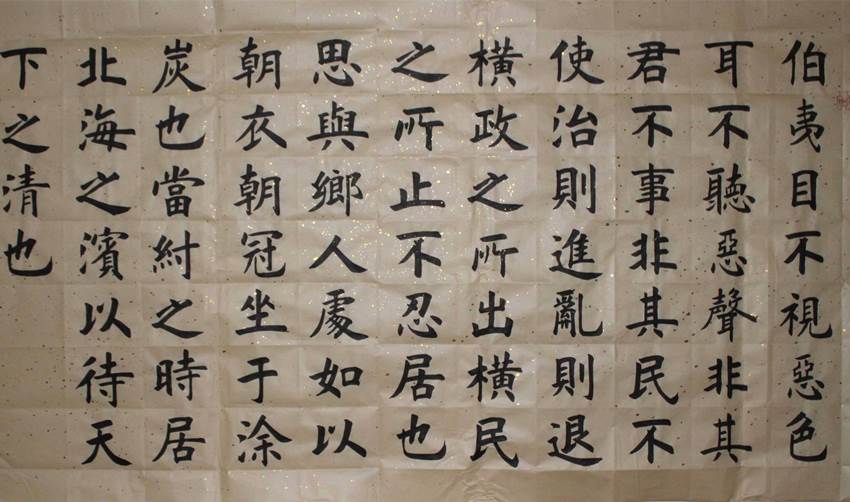 伯夷目不視惡色
耳不聽惡聲非其
君不事非其民不
使治則進亂則退
橫政之所出橫民
之所止不忍居也
思與鄉人處如以
朝衣朝冠坐于涂
炭也當紂之時居
北海之濱以待天
下之清也